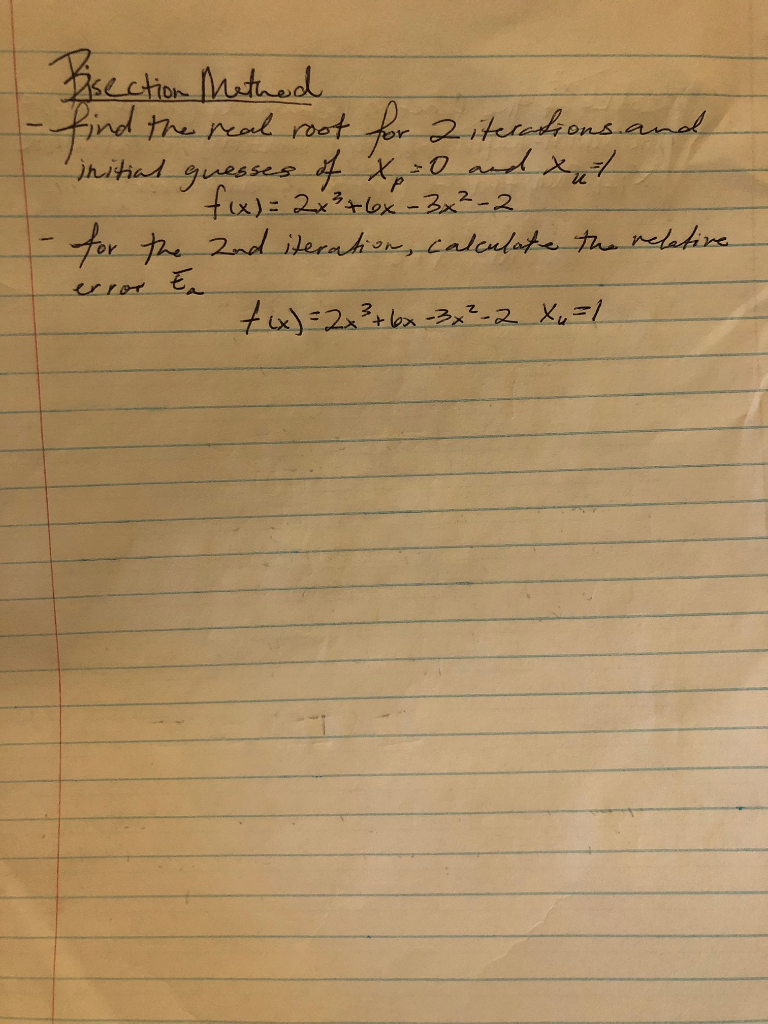 Bisection Method
- find the real root for 2 iterations and
initial guesses of Xₚ=0 and Xᵤ=1
f(x) = 2x³+6x-3x²-2
- for the 2nd iteration, calculate the relative
error Eₐ
f(x)=2x³+6x-3x²-2 Xᵤ=1